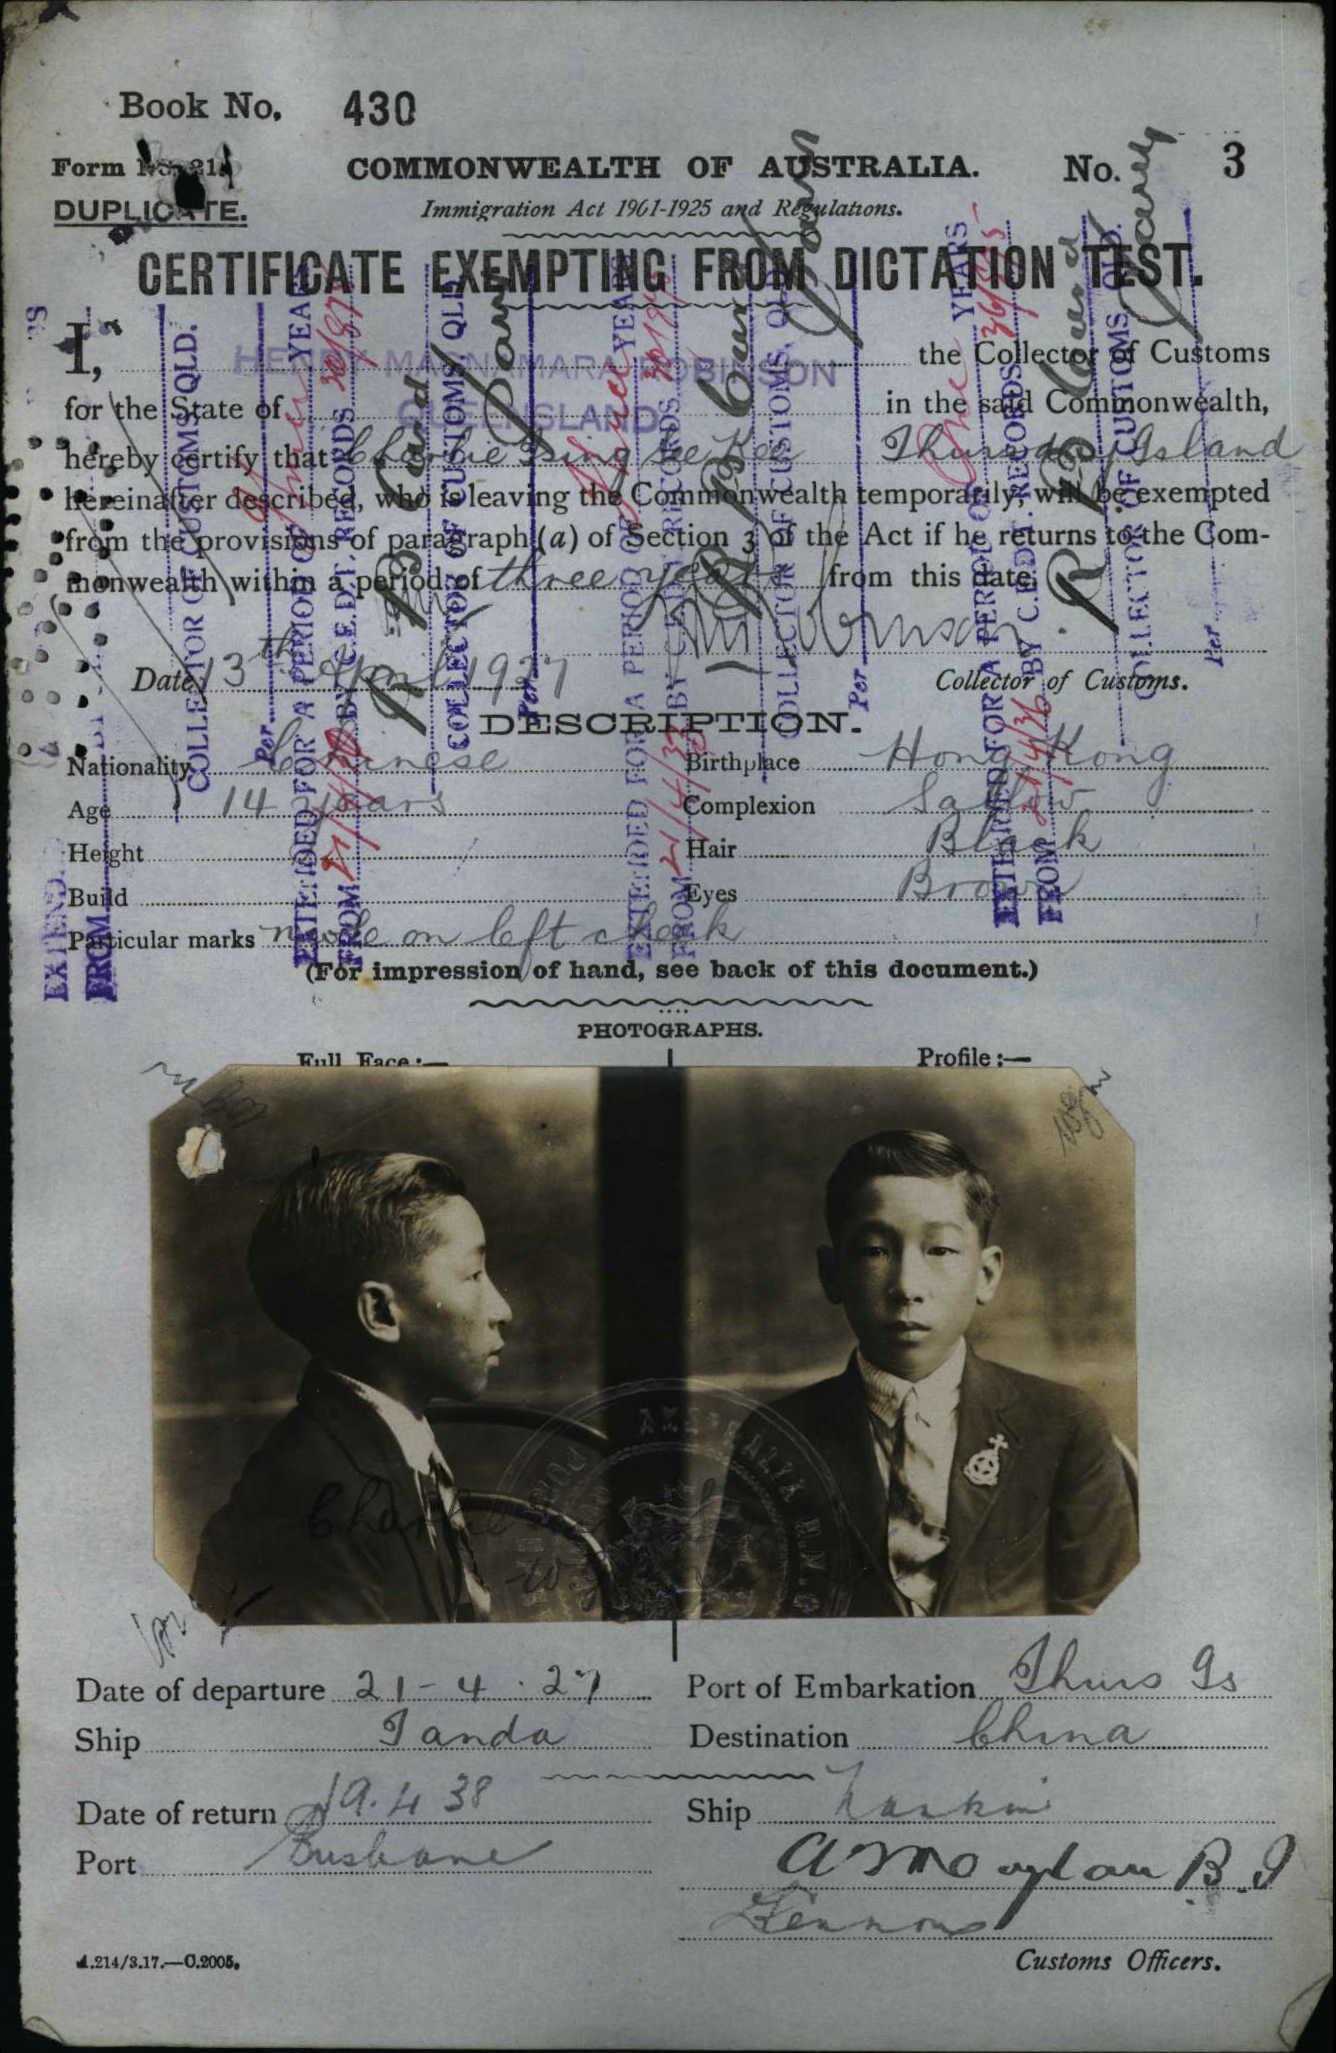 Book No. 430
Form No. 21
COMMONWEALTH OF AUSTRALIA.
No. 3
DUPLICATE.
Immigration Act 1901-1925 and Regulations.
CERTIFICATE EXEMPTING FROM DICTATION TEST.
I, HENRY MACNAMARA ROBINSON the Collector of Customs
for the State of QUEENSLAND in the said Commonwealth,
hereby certify that Charlie Tsing See Kee Thursday Island
hereinafter described, who is leaving the Commonwealth temporarily, will be exempted
from the provisions of paragraph (a) of Section 3 of the Act if he returns to the Com-
monwealth within a period of three years from this date.
Date 13th April 1927
Collector of Customs.
DESCRIPTION.
Nationality Chinese
Birthplace Hong Kong
Age 14 years
Complexion Sallow
Height
Hair Black
Build
Eyes Brown
Particular marks mole on left cheek
(For impression of hand, see back of this document.)
PHOTOGRAPHS.
Full Face:—
Profile:—
Date of departure 21-4.27
Port of Embarkation Thurs Is
Ship Tanda
Destination China
Date of return 19.4.38
Ship Nankin
Port Brisbane
Customs Officers.
A.214/3.17.—C.2005.
EXTENDED FOR A PERIOD OF Three YEARS
FROM 21/4/30 BY C.E.D.T. RECORDS
COLLECTOR OF CUSTOMS, QLD.
Per
EXTENDED FOR A PERIOD OF Three YEARS
FROM 21/4/33 BY C.E.D.T. RECORDS
COLLECTOR OF CUSTOMS, QLD.
Per
EXTENDED FOR A PERIOD OF One YEARS
FROM 21/4/36 BY C.E.D.T. RECORDS
COLLECTOR OF CUSTOMS, QLD.
Per
EXTEND
FROM
COLLECTOR OF CUSTOMS QLD.
Per